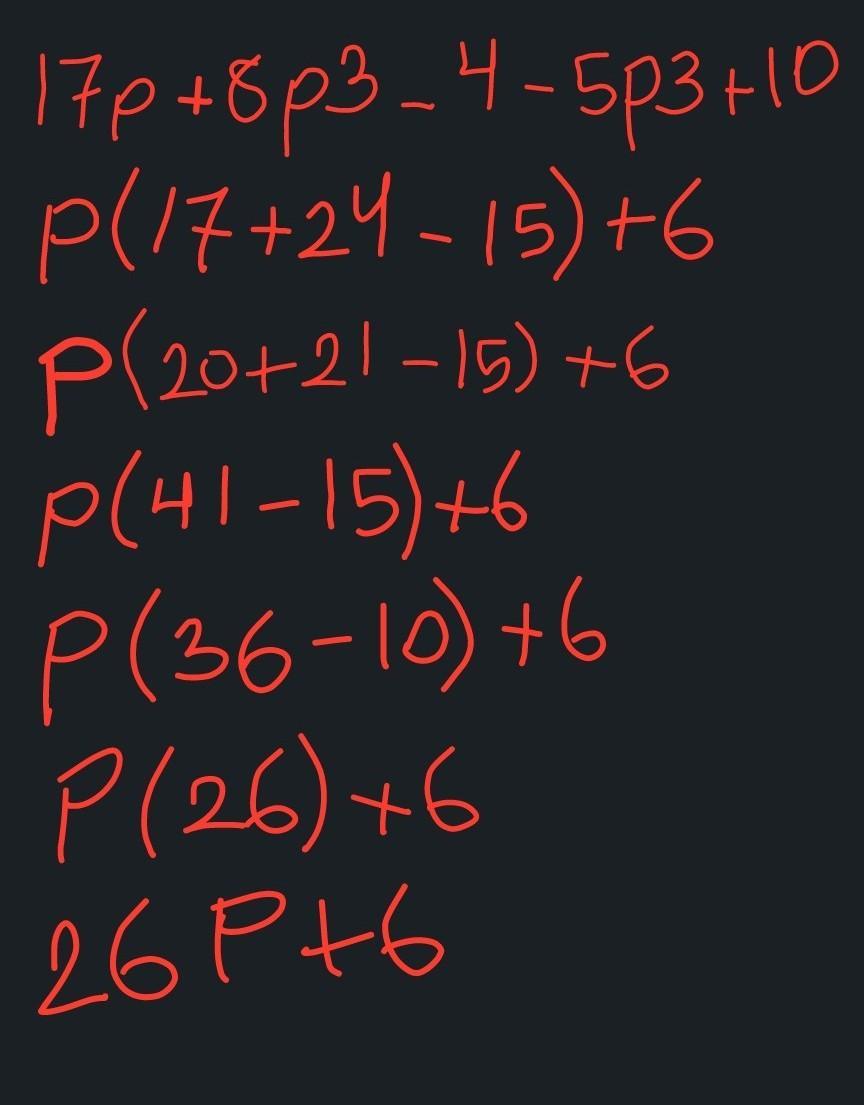 17p+8p3-4-5p3+10
p(17+24-15)+6
p(20+21-15)+6
p(41-15)+6
p(36-10)+6
p(26)+6
26p+6